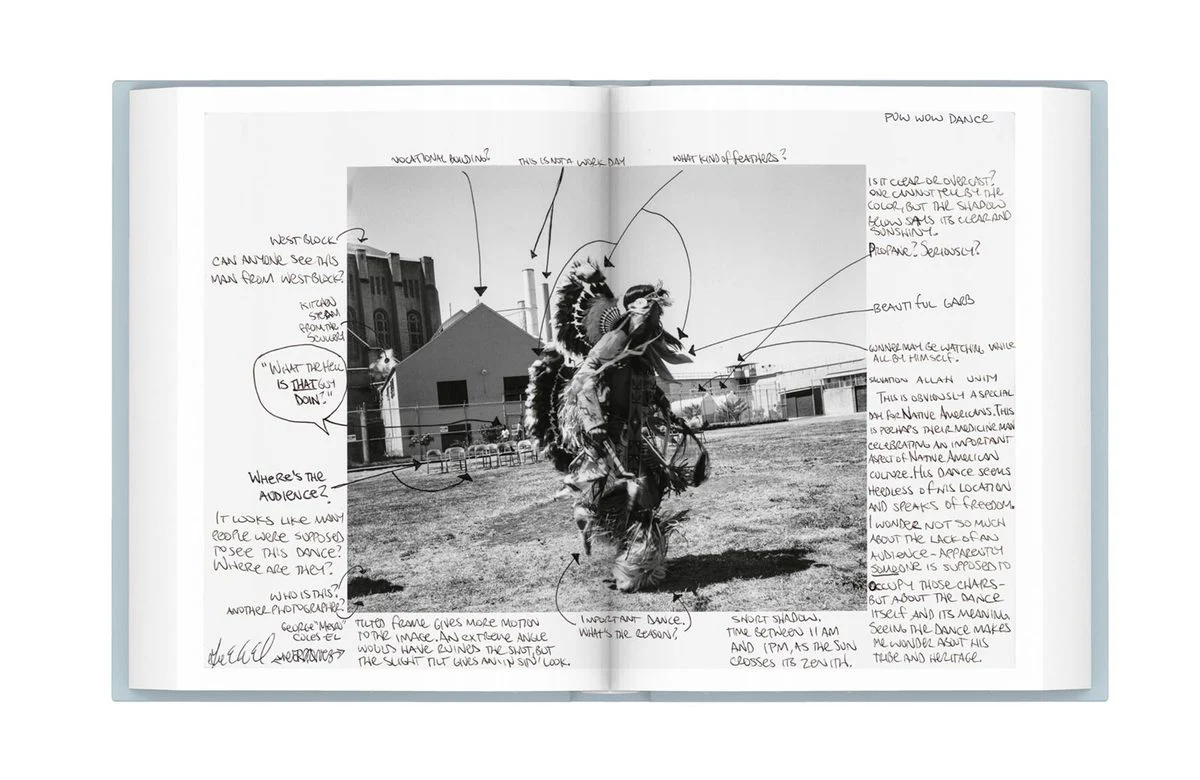 POW WOW DANCE
VOCATIONAL BUILDING?
THIS IS NOT A WORK DAY
WHAT KIND OF FEATHERS?
WEST BLOCK
CAN ANYONE SEE THIS
MAN FROM WEST BLOCK?
KITCHEN
STEAM
FROM THE
SCULLERY
"WHAT THE HELL
IS THAT GUY
DOIN?"
WHERE'S THE
AUDIENCE?
IT LOOKS LIKE MANY
PEOPLE WERE SUPPOSED
TO SEE THIS DANCE?
WHERE ARE THEY?
WHO IS THIS?
ANOTHER PHOTOGRAPHER?
GEORGE "MESRO"
COLES-EL
TILTED FRAME GIVES MORE MOTION
TO THE IMAGE. AN EXTREME ANGLE
WOULD HAVE RUINED THE SHOT, BUT
THE SLIGHT TILT GIVES AN 'IN SIN' LOOK.
IMPORTANT DANCE.
WHAT'S THE REASON?
SHORT SHADOW.
TIME BETWEEN 11 AM
AND 1PM, AS THE SUN
CROSSES ITS ZENITH.
IS IT CLEAR OR OVERCAST?
ONE CANNOT TELL BY THE
COLOR, BUT THE SHADOW
BELOW SAYS ITS CLEAR AND
SUNSHINY.
PROPANE? SERIOUSLY?
BEAUTIFUL GARB
GUNNER MAY BE WATCHING WHILE
ALL BY HIMSELF.
SALVATION ALLAH UNITY
THIS IS OBVIOUSLY A SPECIAL
DAY FOR NATIVE AMERICANS. THIS
IS PERHAPS THEIR MEDICINE MAN
CELEBRATING AN IMPORTANT
ASPECT OF NATIVE AMERICAN
CULTURE. HIS DANCE SEEMS
HEEDLESS OF HIS LOCATION
AND SPEAKS OF FREEDOM.
I WONDER NOT SO MUCH
ABOUT THE LACK OF AN
AUDIENCE - APPARENTLY
SOMEONE IS SUPPOSED TO
OCCUPY THOSE CHAIRS -
BUT ABOUT THE DANCE
ITSELF AND ITS MEANING.
SEEING THE DANCE MAKES
ME WONDER ABOUT HIS
TRIBE AND HERITAGE.